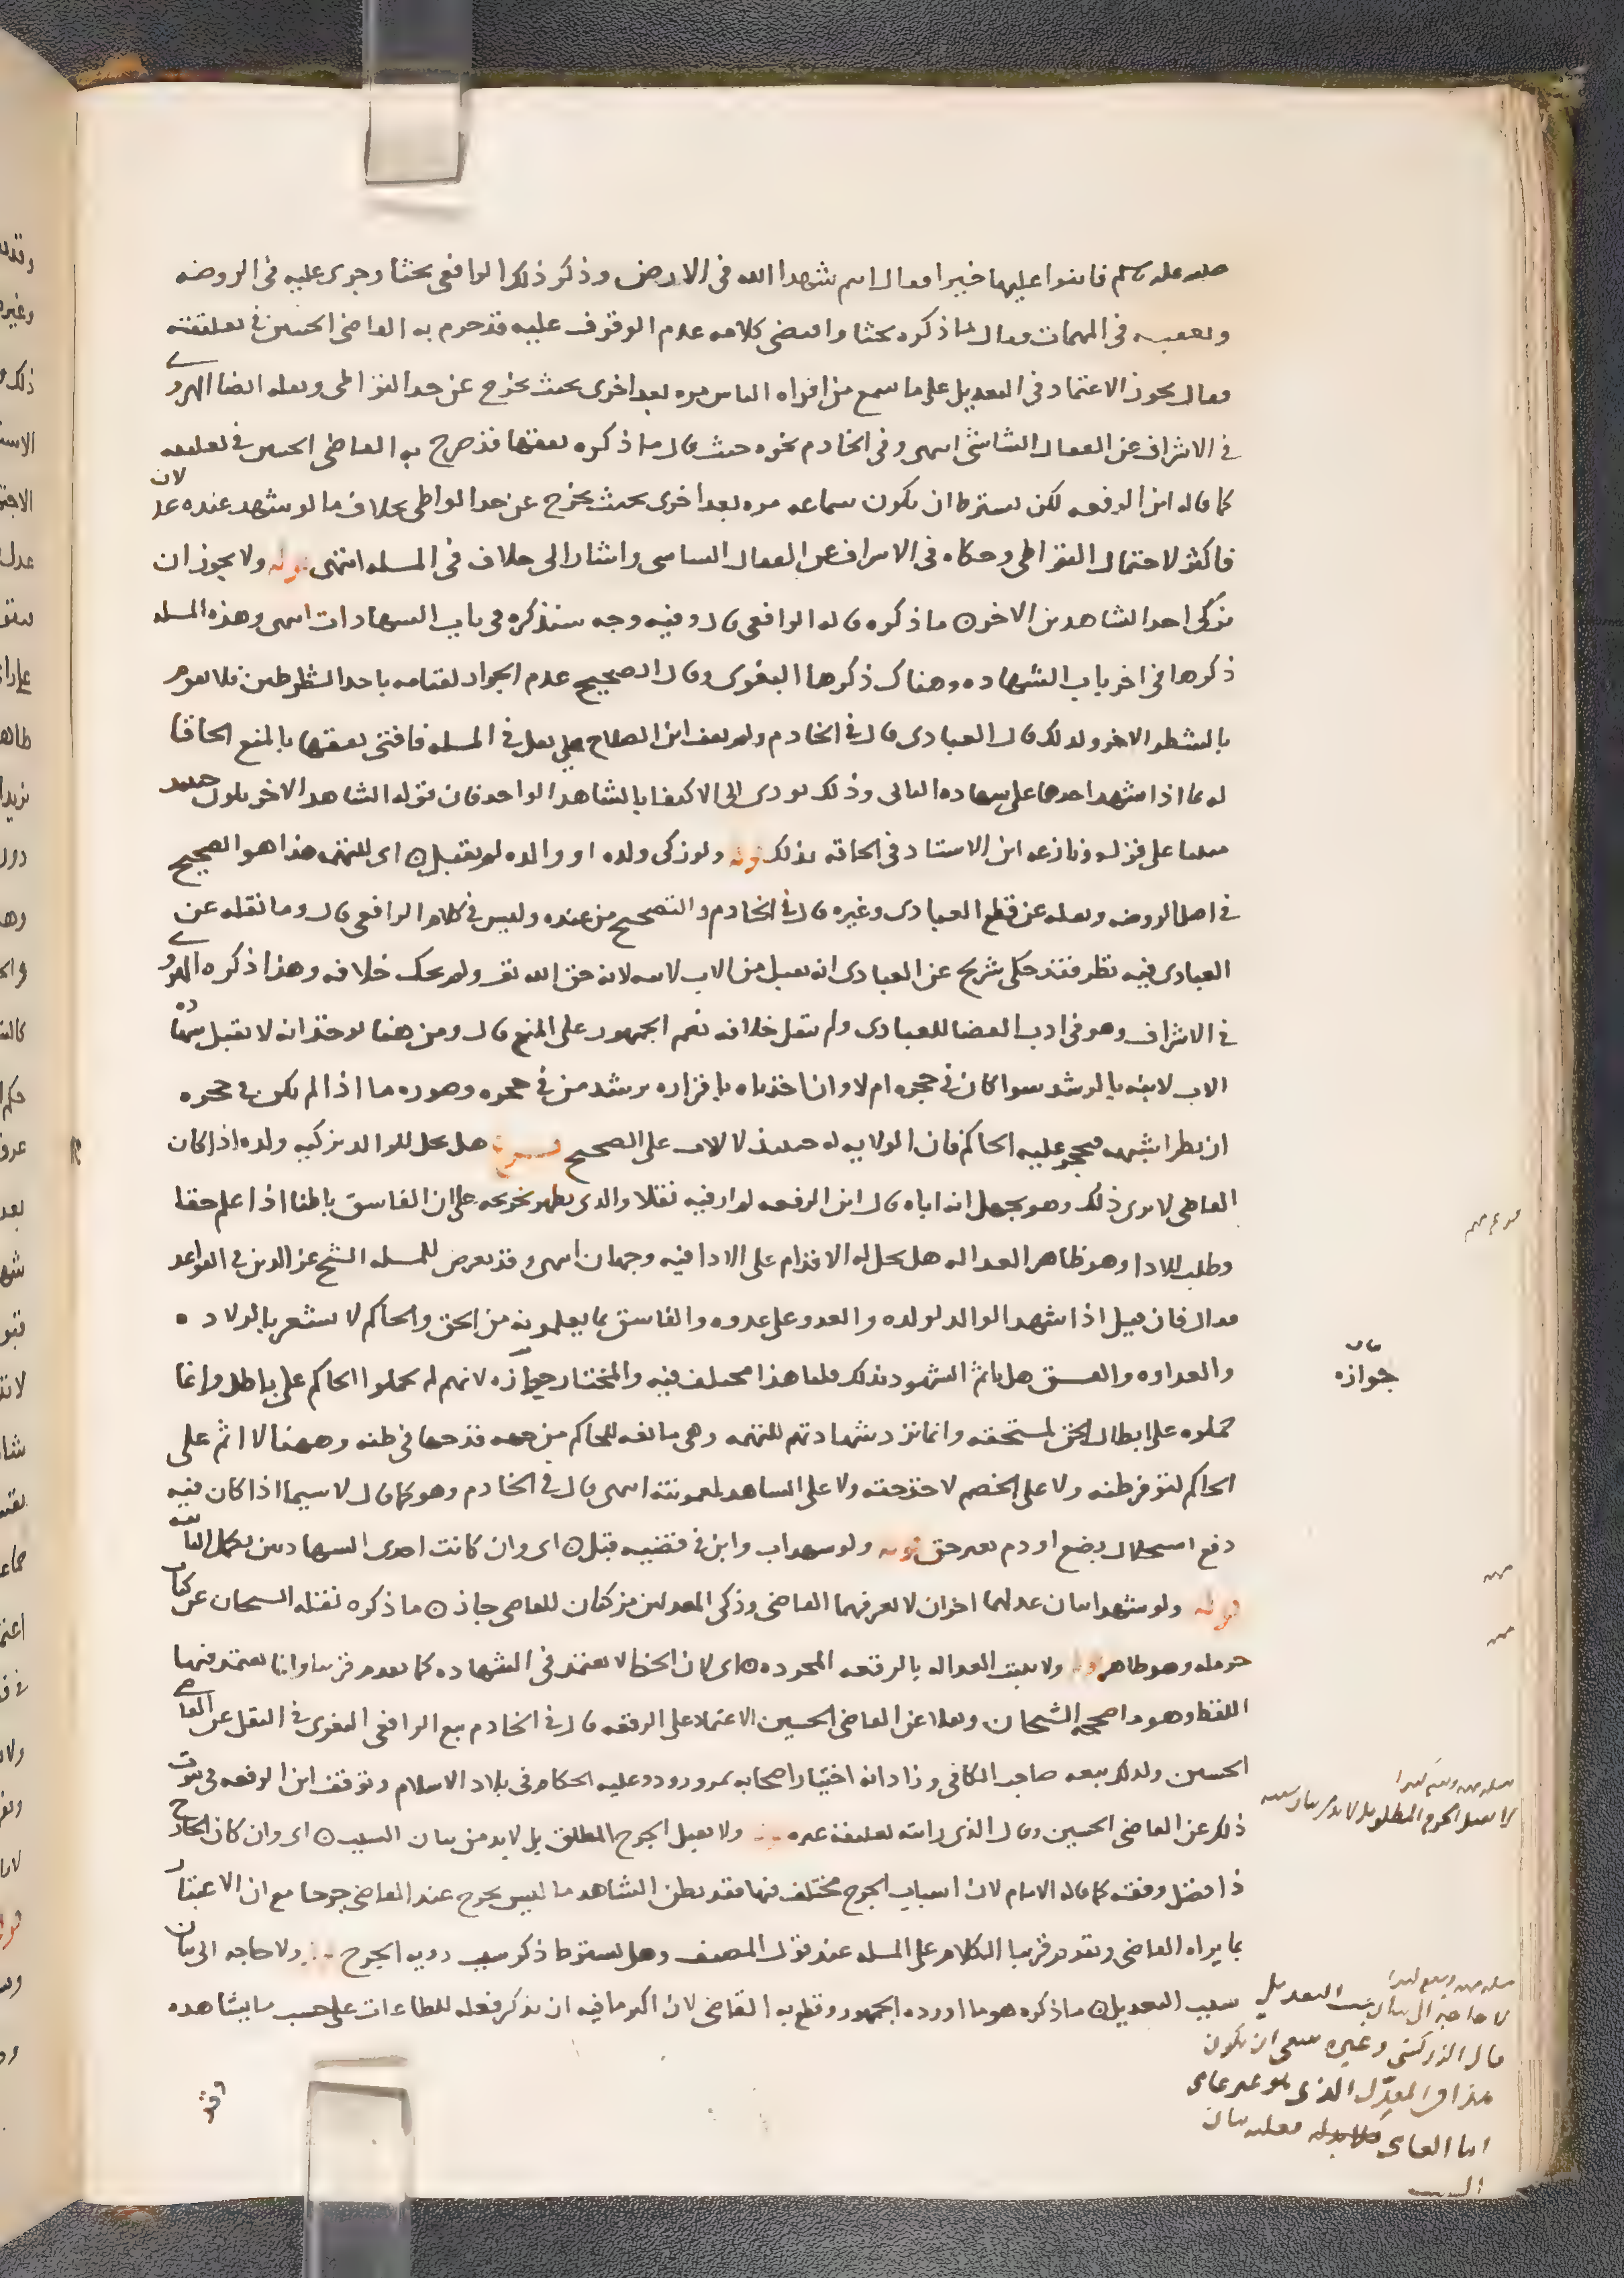 صلى الله عليه وسلم فاثنوا عليها خيرا فقال انتم شهدا الله في الارض وذكر ذلك الرافعي بحثا وجرى عليه في الروضه
وتعقبه في المهمات فقال ما ذكره بحثا واقتضى كلامه عدم الوقوف عليه قد جزم به القاضي الحسين في تعليقته
فقال يجوز الاعتماد في التعديل على ما سمع من افواه الناس مره بعد اخرى بحيث يخرج عن حد التواطى ونقله ايضا الهروي
في الاشراف عن القفال الشاشي انتهى وفي الخادم نحوه حيث قال ما ذكره تفقها قد صرح به القاضي الحسين في تعليقه
كما قاله ابن الرفعه لكن يشترط ان يكون سماعه مره بعد اخرى بحيث يخرج عن حد التواطى بخلاف ما لو شهد عنده عدلان
فاكثر لاحتمال التواطى وحكاه في الاشراف عن القفال الشاشي واشار الى خلاف في المسله انتهى قوله ولا يجوز ان
يزكى احد الشاهدين الاخر ما ذكره قاله الرافعي قال وفيه وجه سنذكره في باب الشهادات انتهى وهذه المسله
ذكرها في اخر باب الشهاده وهناك ذكرها البغوي وقال الصحيح عدم الجواز لقيامه باحد الشطرين فلا يقوم
بالشطر الاخر ولذلك قال العبادي قال في الخادم ولم يقف ابن الصلاح على نقل في المسله فافتى تفقها بالمنع الحاقا
له بما اذا شهد احدهما على شهاده الثاني وذلك يودى الى الاكتفا بالشاهد الواحد فان قوله الشاهد الاخر يكون حينيد
على قوله ونازعه ابن الاستاد في الحاقه بذلك قوله ولو زكى ولده او والده لم يقبل اى للتهمه هذا هو الصحيح
في اصل الروضه ونقله عن قطع العبادي وغيره قال في الخادم والتصحيح من عنده وليس في كلام الرافعي قال وما نقله عن
العبادي فيه نظر فقد حكى شريح عن العبادي انه يقبل من الاب لابنه لانه حق الله تعـ ولم يحك خلافه وهذا ذكره الهروي
في الاشراف وهو في ادب القضا للعبادي ولم ينقل خلافه نعم الجمهور على المنع قال ومن هنا يوخذ انه لا تقبل شهاده
الاب لابنه بالرشد سوا كان في حجره ام لا وان اخذناه باقراره برشد من في حجره وصوره ما اذا لم يكن في حجره
ان يطرا سفهه فيحجر عليه الحاكم فان الولايه له حينيذ لا للاب على الصحيح تنبيه هل يحل للوالد تزكيه ولده اذا كان
القاضي لا يرى ذلك وهو يجهل انه اباه قال ابن الرفعه لم ار فيه نقلا والذي يظهر تخريجه على ان الفاسق باطنا اذا علم حقا
وطلب للادا وهو ظاهر العداله هل يحل له الاقدام على الادا فيه وجهان انتهى وقد تعرض للمسله الشيخ عز الدين في القواعد
فقال فان قيل اذا شهد الوالد لولده والعدو على عدوه والفاسق بما يعلمونه من الحق والحاكم لا يشعر بالولاده
والعداوه والفسق هل ياثم الشهود بذلك قلنا هذا مختلف فيه والمختار جوازه لانهم لم يحملوا الحاكم على باطل وانما
حملوه على ايصال الحق لمستحقه وانما ترد شهادتهم للتهمه وهى مانعه للحاكم من جهه قدحها في ظنه وههنا لا اثم على
الحاكم لتوفر ظنه ولا على الخصم لاخذ حقه ولا على الشاهد لمعونته انتهى قال في الخادم وهو كما قال لا سيما اذا كان فيه
دفع استحلال بضع او دم بغير حق قوله ولو شهد اب وابن في قضيه قبل اى وان كانت احدى الشهادتين تكمل الثانيه
قوله ولو شهد اثنان عدلهما اخران لا يعرفهما القاضي وزكى المعدلين مزكيان للقاضي جاز ما ذكره نقله الشيخان عن كتاب
حرمله وهو ظاهر قوله ولا تثبت العداله بالرقعه المجرده اى لان الخط لا يعتمد في الشهاده كما تقدم قريبا وانما يعتمد فيها
اللفظ وهو ما صححه الشيخان ونقلا عن القاضي الحسين الاعتماد على الرقعه قال في الخادم تبع الرافعي البغوي في النقل عن القاضي
الحسين ولذلك تبعه صاحب الكافي وزاد انه اختيار اصحابه بمرو رود وعليه الحكام في بلاد الاسلام وتوقف ابن الرفعه في ثبوت
ذلك عن القاضي الحسين وقال الذي رايته تعليقه غيره ولا يقبل الجرح المطلق بل لا بد من بيان السبب اى وان كان الجارح
ذا فضل وفقه كما قاله الامام لان اسباب الجرح مختلف فيها فقد يظن الشاهد ما ليس بجرح عند القاضي جرحا مع ان الاعتبار
بما يراه القاضي وتقدم قريبا الكلام على المسله عند قول المصنف وهل يشترط ذكر سبب رويه الجرح ولا حاجه الى بيان
سبب التعديل ما ذكره هو ما اورده الجمهور وقطع به القاضي لان اكثر ما فيه ان يذكر فعله للطاعات على حسب ما يشاهده
بيان
جوازه
لا يقبل الجرح المطلق بل لا بد من بيان سببه
لا حاجه الى بيان سبب التعديل
قال الزركشي وغيره ينبغي ان يكون
هذا في المعدل الذي هو غير عامي
اما العامي فعليه بيان
السبب